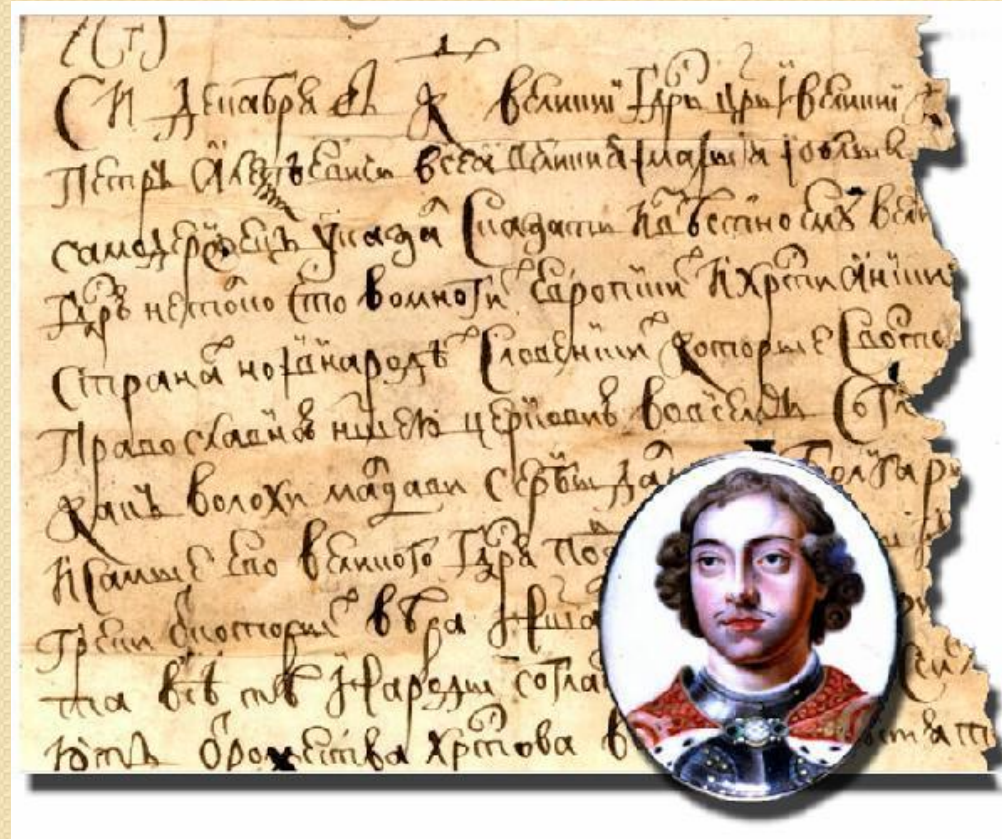 СИ декабря въ К великиі гдрь црь і великиі
Петръ Алеѯѣевичь всеа великия і малыя і белыя
самодержецъ указа сказати извѣстно ему вели
гдрю не толко что во многи европски и христианских
страна но і в народѣ словенски которые с восто
православною нашею церковию во всем согл
како волохи малдави сербы далматы болгары
и самые его великого гдря по
греки от которы вѣра наша
та всѣ тѣ народы согла
ютъ от рожества хрстова в